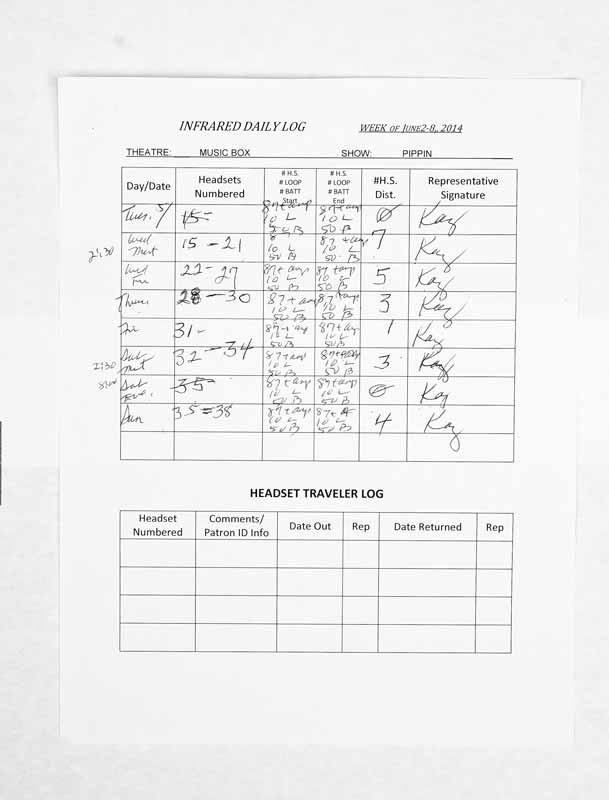 INFRARED DAILY LOG WEEK OF JUNE2-8, 2014
THEATRE: MUSIC BOX SHOW: PIPPIN
Day/Date Headsets Numbered # H.S. # LOOP # BATT Start # H.S. # LOOP # BATT End #H.S. Dist. Representative Signature
Tues. 15- 87+amp 10 L 50 B 87+amp 10 L 50 B 0 Kay
2:30 Wed Mat 15-21 8 10 L 50 B 87+amp 10 L 50 B 7 Kay
Wed 22-27 87+amp 10 L 50 B 87+amp 10 L 50 B 5 Kay
Thurs 28-30 87+amp 10 L 50 B 87+amp 10 L 50 B 3 Kay
Fri 31- 87+amp 10 L 50 B 87+amp 10 L 50 B 1 Kay
2:30 Sat Mat 32-34 87+amp 10 L 50 B 87+amp 10 L 50 B 3 Kay
8:00 Sat Eve. 35- 87+amp 10 L 50 B 87+amp 10 L 50 B 0 Kay
Sun 35=38 87+amp 10 L 50 B 87+A 10 L 50 B 4 Kay
HEADSET TRAVELER LOG
Headset Numbered Comments/ Patron ID Info Date Out Rep Date Returned Rep